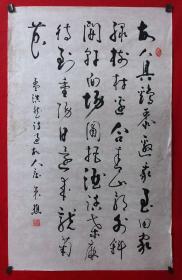 故人具鷄黍邀我至田家
綠樹村邊合青山郭外斜
開軒面場圃把酒話桑麻
待到重陽日還來就菊
花
孟浩然詩過故人莊